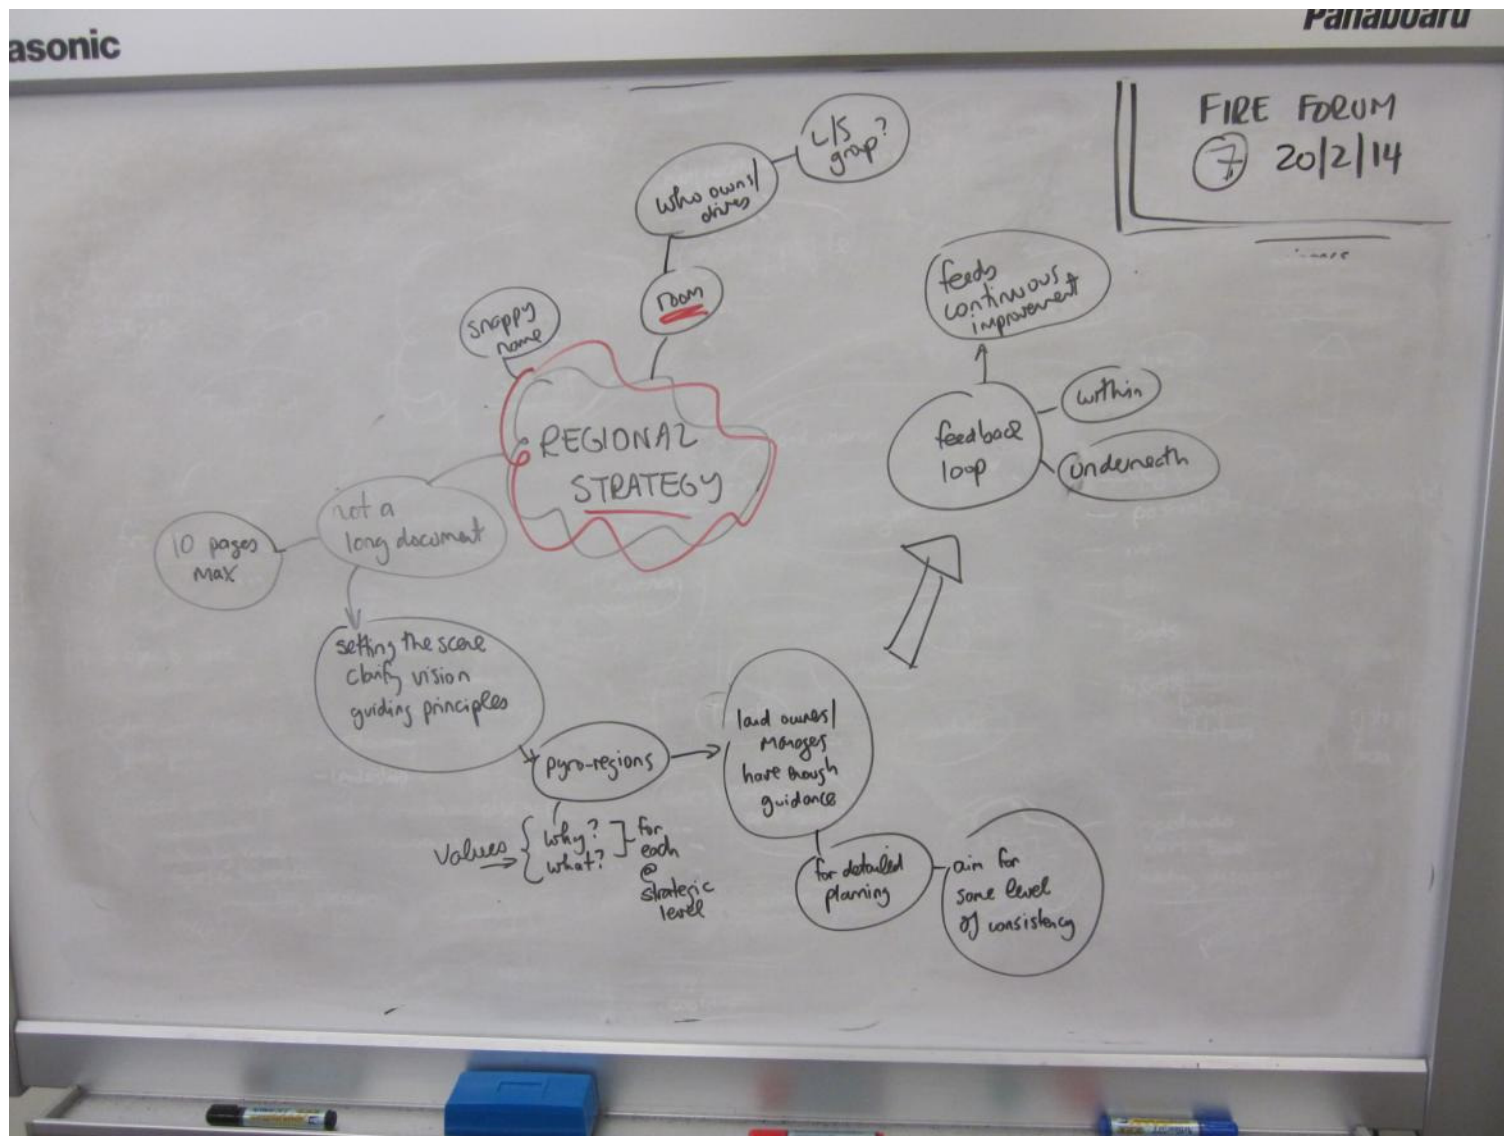 asonic
Panaboard
FIRE FORUM
7 20/2/14
L/S
group?
who owns/
drives
room
snappy
name
REGIONAL
STRATEGY
not a
long document
10 pages
max
setting the scene
clarify vision
guiding principles
pyro-regions
values
why?
what?
for
each
@
strategic
level
land owners/
managers
have enough
guidance
for detailed
planning
aim for
some level
of consistency
feedback
loop
within
underneath
feeds
continuous
improvement